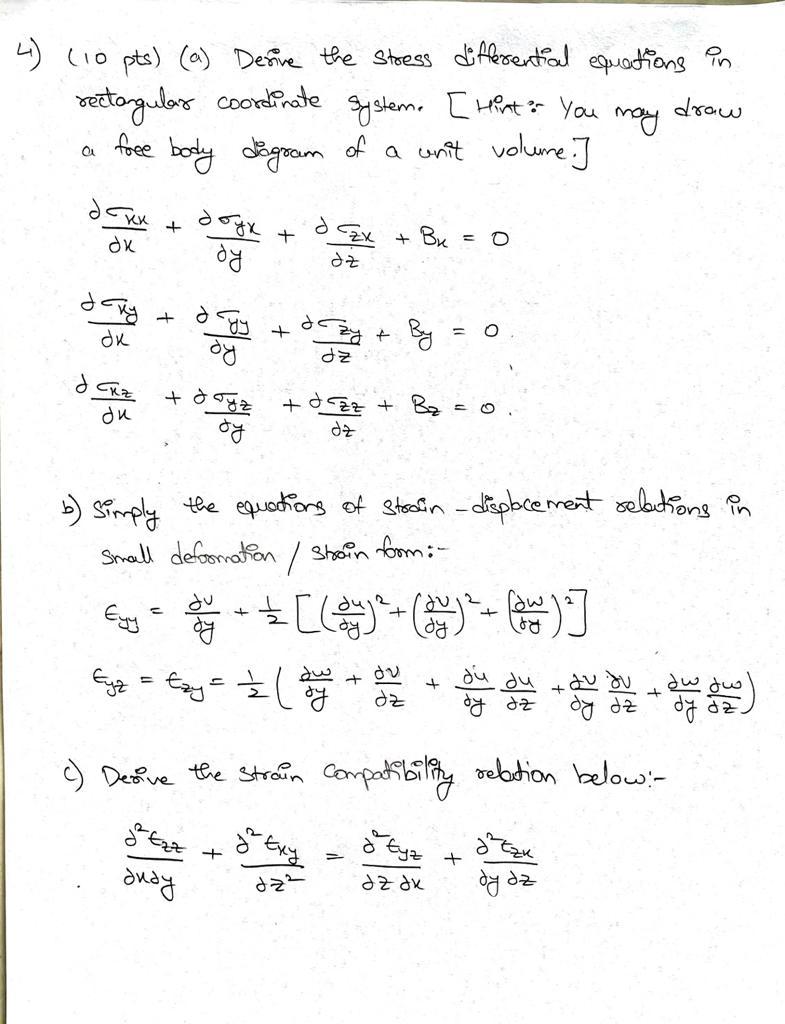 4) (10 pts) (a) Derive the stress differential equations in
rectangular coordinate system. [Hint:- You may draw
a free body diagram of a unit volume.]
∂σxx/∂x + ∂σyx/∂y + ∂σzx/∂z + Bx = 0
∂σxy/∂x + ∂σyy/∂y + ∂σzy/∂z + By = 0.
∂σxz/∂x + ∂σyz/∂y + ∂σzz/∂z + Bz = 0.
b) Simply the equations of strain-displacement relations in
small deformation / strain form:-
ϵyy = ∂v/∂y + 1/2 [(∂u/∂y)² + (∂v/∂y)² + (∂w/∂y)²]
ϵyz = ϵzy = 1/2 (∂w/∂y + ∂v/∂z + ∂u/∂y ∂u/∂z + ∂v/∂y ∂v/∂z + ∂w/∂y ∂w/∂z)
c) Derive the strain compatibility relation below:-
∂²ϵzz/∂x∂y + ∂²ϵxy/∂z² = ∂²ϵyz/∂z∂x + ∂²ϵzx/∂y∂z